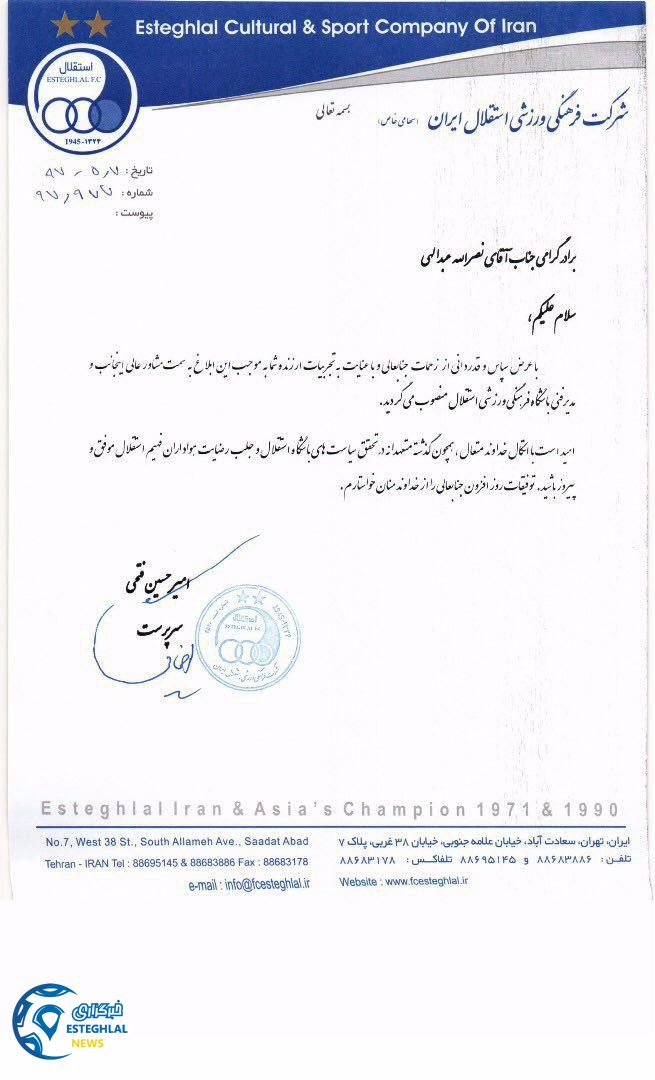 Esteghlal Cultural & Sport Company Of Iran
استقلال
ESTEGHLAL F.C
1945-۱۳۲۴
شرکت فرهنگی ورزشی استقلال ایران (سهامی خاص)
بسمه تعالی
تاریخ :
شماره : ۹۷٫۹۷۷
پیوست :
برادر گرامی جناب آقای نصرالله عبدالهی
سلام علیکم ،
با عرض سپاس و قدردانی از زحمات جنابعالی و با عنایت به تجربیات ارزنده شما به موجب این ابلاغ به سمت مشاور عالی اینجانب و
مدیر فنی باشگاه فرهنگی ورزشی استقلال منصوب می گردید.
امید است با اتکال خداوند متعال ، همچون گذشته متعهدانه در تحقق سیاست های باشگاه استقلال و جلب رضایت هواداران فهیم استقلال موفق و
پیروز باشید. توفیقات روز افزون جنابعالی را از خداوند منان خواستارم.
امیر حسین فتحی
سرپرست
استقلال
ESTEGHLAL F.C
1945-۱۳۲۴
Esteghlal Iran & Asia's Champion 1971 & 1990
ایران، تهران، سعادت آباد، خیابان علامه جنوبی، خیابان ۳۸ غربی، پلاک ۷
تلفن : ۸۸۶۸۳۸۸۶ و ۸۸۶۹۵۱۴۵ تلفاکس : ۸۸۶۸۳۱۷۸
Website : www.fcesteghlal.ir
No.7, West 38 St., South Allameh Ave., Saadat Abad
Tehran - IRAN Tel : 88695145 & 88683886 Fax : 88683178
e-mail : info@fcesteghlal.ir
خبرگزاری
ESTEGHLAL
NEWS